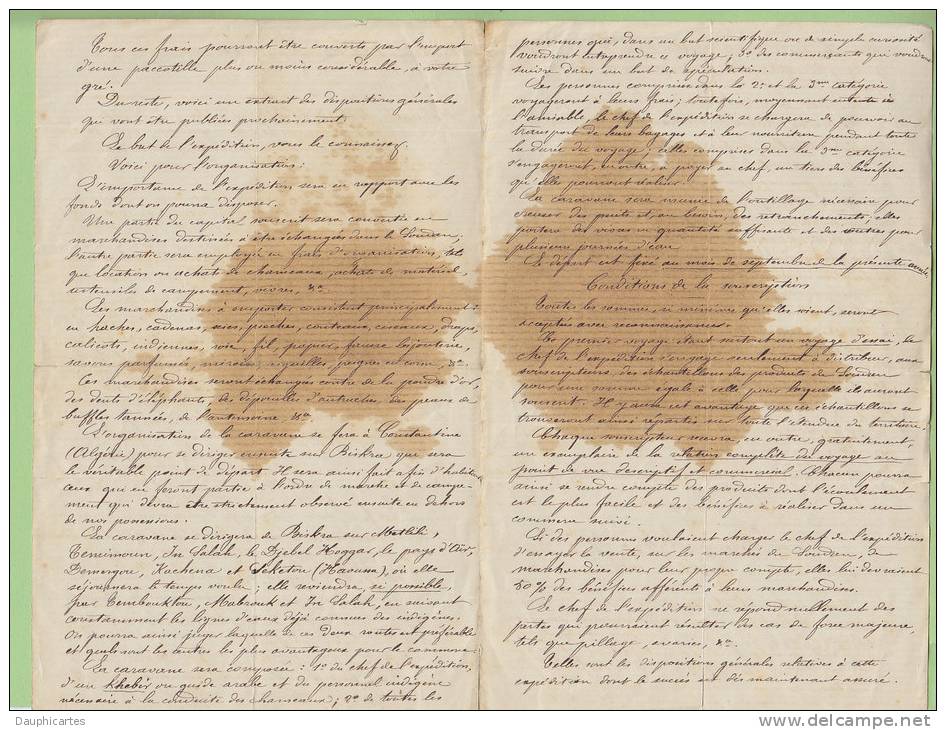 Tous ces frais pourront être couverts par l'emport
d'une paccotille plus ou moins considérable, à votre
gré.
Du reste, voici un extrait des dispositions générales
qui vont être publiées prochainement.
Le but de l'expédition, vous le connaissez.
Voici pour l'organisation:
L'importance de l'expédition sera en rapport avec les
fonds dont on pourra disposer.
Une partie du capital souscrit sera convertie en
marchandises destinées à être échangées dans le Soudan;
l'autre partie sera employée en frais d'organisation, tels
que location ou achat de chameaux, achats de matériel,
ustensiles de campement, vivres, &a.
Les marchandises à emporter consistent principalement
en haches, cadenas, scies, pioches, couteaux, ciseaux, draps,
calicots, indiennes, soie, fil, papier, fausse bijouterie,
savons parfumés, miroirs, aiguilles, peignes en corne, &a.
Ces marchandises seront échangées contre de la poudre d'or,
des dents d'éléphants, des dépouilles d'autruches, des peaux de
buffles tannées, de l'antimoine &a.
L'organisation de la caravane se fera à Constantine
(Algérie) pour se diriger ensuite sur Biskra que sera
le véritable point de départ. Il sera ainsi fait afin d'habituer
ceux qui en feront partie à l'ordre de marche et de campe-
ment qui devra être strictement observé ensuite en dehors
de nos possessions.
La caravane se dirigera de Biskra sur Metlili,
Temimoun, In Salah, le Djebel Hoggar, le pays d'Aïr,
Demergou, Kachena et Seketou (Haoussa), où elle
séjournera le temps voulu; elle reviendra, si possible,
par Tembouktou, Mabrouk et In Salah, en suivant
constamment les lignes d'eaux déjà connues des indigènes.
On pourra ainsi juger laquelle de ces deux routes est préférable
et quels sont les centres les plus avantageux pour le commerce.
La caravane sera composée: 1º du chef de l'expédition,
d'un Khebir ou guide arabe et du personnel indigène
nécessaire à la conduite des chameaux; 2º de toutes les
personnes qui, dans un but scientifique ou de simple curiosité
voudront entreprendre ce voyage, 3º des commerçants qui voudront
suivre dans un but de spéculation.
Les personnes comprises dans la 2e et la 3me catégorie
voyageront à leurs frais; toutefois, moyennant entente à
l'amiable, le chef de l'expédition se chargera de pourvoir au
transport de leurs bagages et à leur nourriture pendant toute
la durée du voyage; celles comprises dans la 3me catégorie
s'engageront, en outre, à payer au chef, un tiers des bénéfices
qu'elles pourront réaliser.
La caravane sera munie de l'outillage nécessaire pour
creuser des puits et, au besoin, des retranchements; elle
portera des vivres en quantité suffisante et des outres pour
plusieurs journées d'eau.
Le départ est fixé au mois de septembre de la présente année.
Conditions de la souscription
Toutes les sommes, si minimes qu'elles soient, seront
acceptées avec reconnaissance.
Ce premier voyage étant surtout un voyage d'essai, le
chef de l'expédition s'engage seulement à distribuer, aux
souscripteurs, des échantillons des produits du Soudan
pour une somme égale à celle pour laquelle ils auront
souscrit. Il y aura cet avantage que ces échantillons se
trouveront ainsi répartis sur toute l'étendue du territoire.
Chaque souscripteur recevra, en outre, gratuitement,
un exemplaire de la relation complète du voyage au
point de vue descriptif et commercial. Chacun pourra
ainsi se rendre compte des produits dont l'écoulement
est le plus facile et des bénéfices à réaliser dans un
commerce suivi.
Si des personnes voulaient charger le chef de l'expédition
d'essayer la vente, sur les marchés du Soudan, de
marchandises pour leur propre compte, elles lui devraient
50 % des bénéfices afférents à leurs marchandises.
Le chef de l'expédition ne répond nullement des
pertes qui pourraient résulter des cas de force majeure,
tels que pillage, avaries, &a.
Telles sont les dispositions générales relatives à cette
expédition dont le succès est dès maintenant assuré.
Dauphicartes
www.delcampe.net